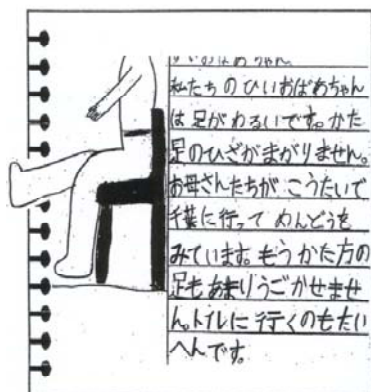 ひいおばあちゃん
私たちのひいおばあちゃん
は足がわるいです。かた
足のひざがまがりません。
お母さんたちが こうたいで
千葉に行って めんどうを
みています。もうかた方の
足もあまりうごかせませ
ん。トイレに行くのもたい
へんです。